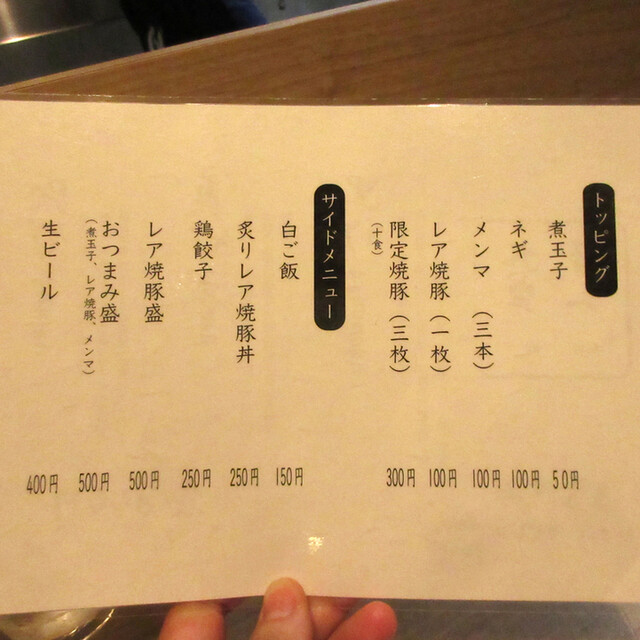 トッピング
煮玉子 50円
ネギ 100円
メンマ (三本) 100円
レア焼豚 (一枚) 100円
限定焼豚 (三枚) 300円
(十食)
サイドメニュー
白ご飯 150円
炙りレア焼豚丼 250円
鶏餃子 250円
レア焼豚盛 500円
おつまみ盛 500円
(煮玉子、レア焼豚、メンマ)
生ビール 400円